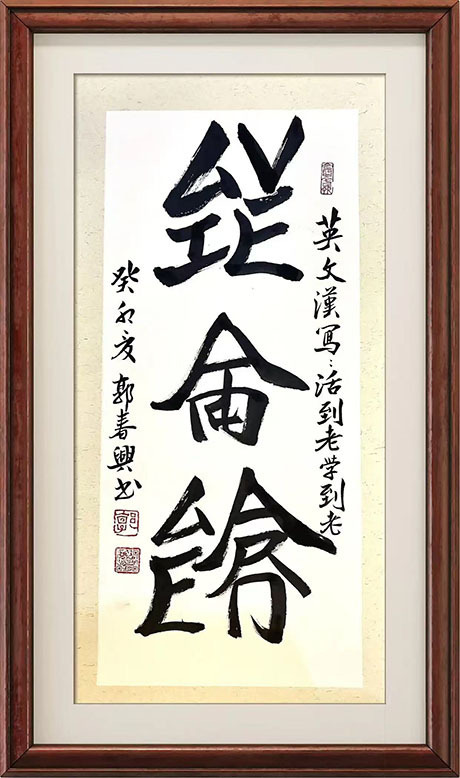 英文漢寫：活到老学到老
LIVE
AND
LEARN
癸卯夏 郭春興书